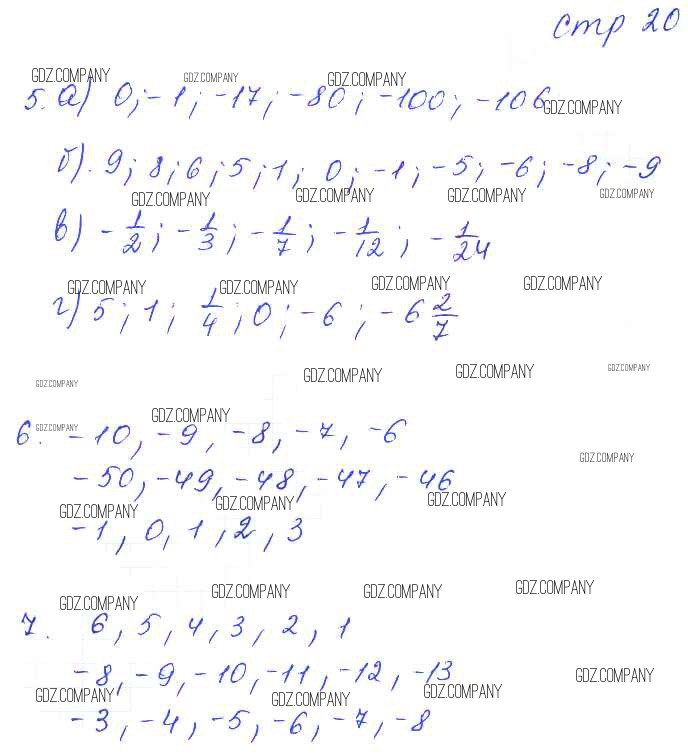 стр 20
GDZ.COMPANY GDZ.COMPANY GDZ.COMPANY
5. а) 0; -1; -17; -80; -100; -106
GDZ.COMPANY
б). 9; 8; 6; 5; 1; 0; -1; -5; -6; -8; -9
GDZ.COMPANY GDZ.COMPANY GDZ.COMPANY GDZ.COMPANY
в) -1/2; -1/3; -1/7; -1/12; -1/24
GDZ.COMPANY GDZ.COMPANY GDZ.COMPANY GDZ.COMPANY
г) 5; 1; 1/4; 0; -6; -6 2/7
GDZ.COMPANY GDZ.COMPANY GDZ.COMPANY GDZ.COMPANY
GDZ.COMPANY GDZ.COMPANY
6. -10, -9, -8, -7, -6
GDZ.COMPANY
-50, -49, -48, -47, -46
GDZ.COMPANY GDZ.COMPANY GDZ.COMPANY
-1, 0, 1, 2, 3
GDZ.COMPANY GDZ.COMPANY GDZ.COMPANY GDZ.COMPANY
7. 6, 5, 4, 3, 2, 1
-8, -9, -10, -11, -12, -13
GDZ.COMPANY GDZ.COMPANY GDZ.COMPANY GDZ.COMPANY
-3, -4, -5, -6, -7, -8